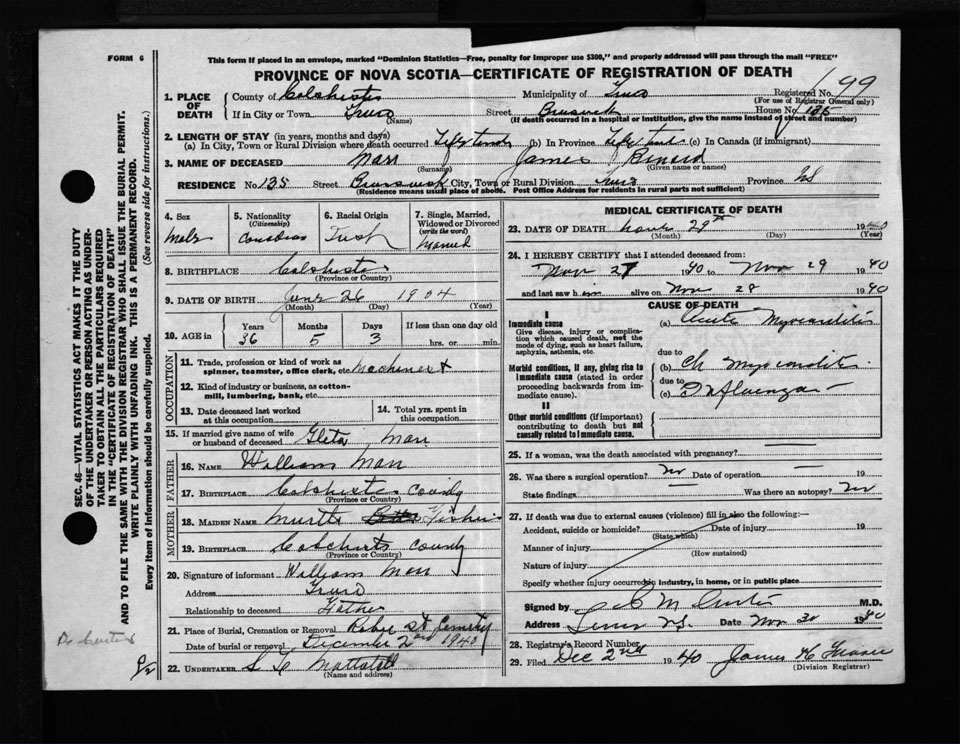 FORM 6
This form if placed in an envelope, marked "Dominion Statistics—Free, penalty for improper use $300," and properly addressed will pass through the mail "FREE"
PROVINCE OF NOVA SCOTIA—CERTIFICATE OF REGISTRATION OF DEATH
199
1. PLACE OF DEATH
County of Colchester Municipality of Truro Registered No.
(For use of Registrar General only)
If in City or Town Truro Street Brunswick House No. 135
(Name) (If death occurred in a hospital or institution, give the name instead of street and number)
2. LENGTH OF STAY (in years, months and days)
(a) In City, Town or Rural Division where death occurred Life time (b) In Province Life time (c) In Canada (if immigrant)
3. NAME OF DECEASED Marr James
(Surname) (Given name or names)
RESIDENCE No. 135 Street Brunswick City, Town or Rural Division Truro Province NS
(Residence means usual place of abode. Post Office Address for residents in rural parts not sufficient)
4. Sex
Male
5. Nationality (Citizenship)
Canadian
6. Racial Origin
7. Single, Married, Widowed or Divorced (write the word)
Married
8. BIRTHPLACE Colchester
(Province or Country)
9. DATE OF BIRTH June 26 1904
(Month) (Day) (Year)
10. AGE in
Years Months Days If less than one day old
36 5 3 hrs. or min.
OCCUPATION
11. Trade, profession or kind of work as spinner, teamster, office clerk, etc. Machinest
12. Kind of industry or business, as cotton-mill, lumbering, bank, etc.
13. Date deceased last worked at this occupation
14. Total yrs. spent in this occupation
15. If married give name of wife or husband of deceased Gleta Marr
FATHER
16. NAME William Marr
17. BIRTHPLACE Colchester County
(Province or Country)
MOTHER
18. MAIDEN NAME
19. BIRTHPLACE Colchester County
(Province or Country)
20. Signature of informant William Marr
Address Truro
Relationship to deceased Father
21. Place of Burial, Cremation or Removal Robie St Cemetery
Date of burial or removal December 2nd 1940
22. UNDERTAKER
(Name and address)
MEDICAL CERTIFICATE OF DEATH
23. DATE OF DEATH Nov 29 1940
(Month) (Day) (Year)
24. I HEREBY CERTIFY that I attended deceased from:
Nov 27 1940 to Nov 29 1940
and last saw him alive on Nov 28 1940
CAUSE OF DEATH
I
Immediate cause
Give disease, injury or complication which caused death, not the mode of dying, such as heart failure, asphyxia, asthenia, etc.
(a) Acute Myocarditis
due to
Morbid conditions, if any, giving rise to immediate cause (stated in order proceeding backwards from immediate cause).
(b) Ch Myocarditis
due to
(c) Influenza
II
Other morbid conditions (if important) contributing to death but not causally related to immediate cause.
25. If a woman, was the death associated with pregnancy?
26. Was there a surgical operation? No Date of operation — 19
State findings — Was there an autopsy? No
27. If death was due to external causes (violence) fill in also the following:—
Accident, suicide or homicide? Date of injury 19
(State which)
Manner of injury
(How sustained)
Nature of injury
Specify whether injury occurred in industry, in home, or in public place
Signed by M.D.
Address Truro N.S. Date Nov 30 1940
28. Registrar's Record Number
29. Filed Dec 2nd 1940 James
(Division Registrar)
SEC. 46—VITAL STATISTICS ACT MAKES IT THE DUTY
OF THE UNDERTAKER OR PERSON ACTING AS UNDER-
TAKER TO OBTAIN ALL THE PARTICULARS REQUIRED
IN THE "CERTIFICATE OF REGISTRATION OF DEATH"
AND TO FILE THE SAME WITH THE DIVISION REGISTRAR WHO SHALL ISSUE THE BURIAL PERMIT.
WRITE PLAINLY WITH UNFADING INK. THIS IS A PERMANENT RECORD.
Every item of information should be carefully supplied. (See reverse side for instructions.)